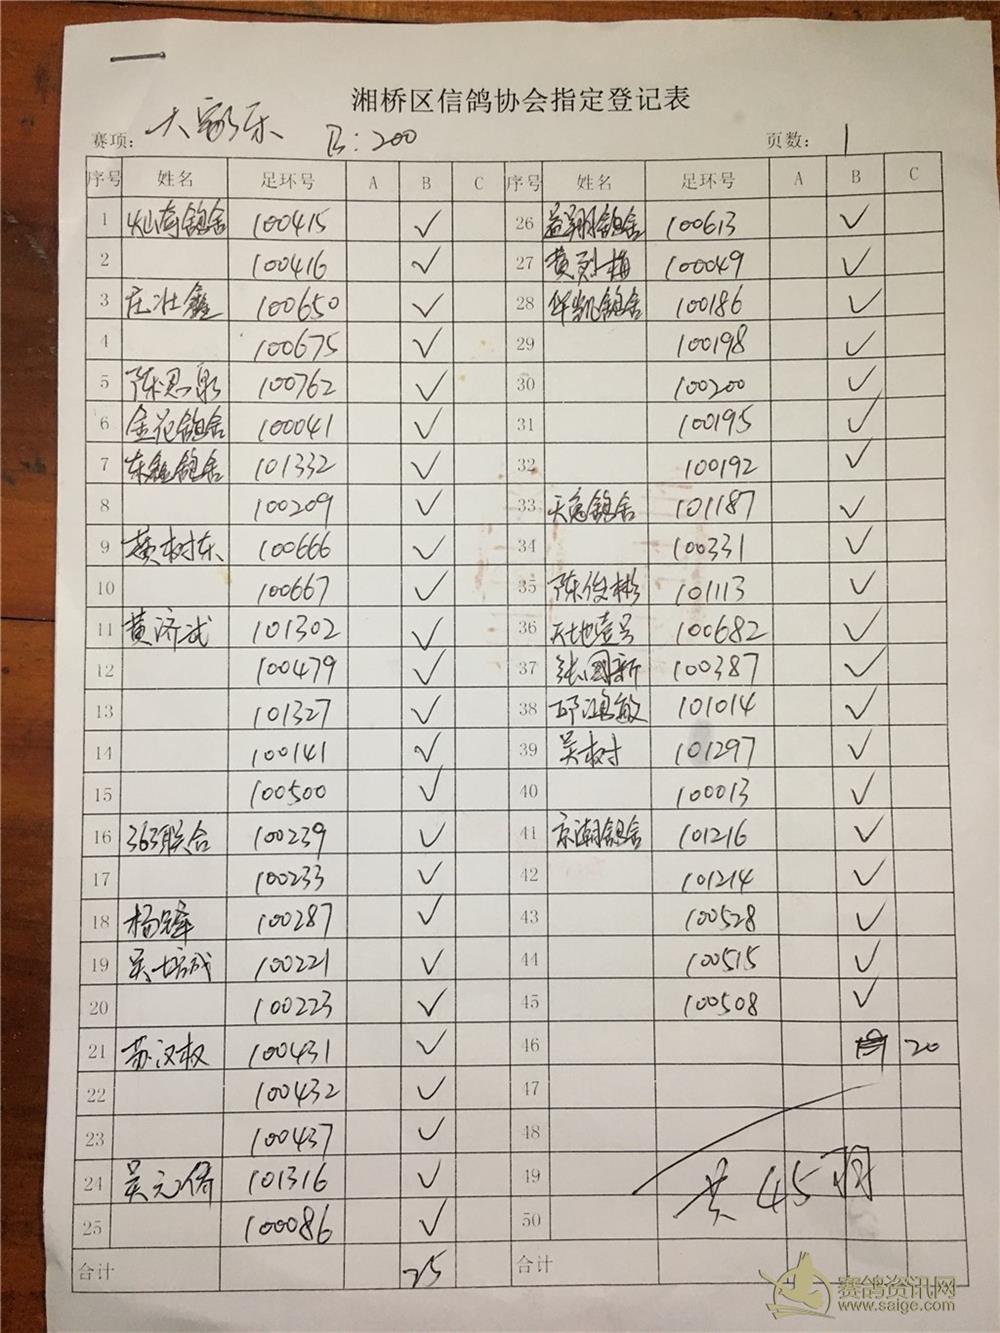 湘桥区信鸽协会指定登记表
赛项: 大家乐 B:200 页数: 1
序号 姓名 足环号 A B C 序号 姓名 足环号 A B C
1 灿奇鸽舍 100415 ✓ 26 益翔鸽舍 100613 ✓
2 100416 ✓ 27 黄烈梅 100049 ✓
3 庄壮鑫 100650 ✓ 28 华凯鸽舍 100186 ✓
4 100675 ✓ 29 100198 ✓
5 陈思泉 100762 ✓ 30 100200 ✓
6 金花鸽舍 100041 ✓ 31 100195 ✓
7 东鑫鸽舍 101332 ✓ 32 100192 ✓
8 100209 ✓ 33 天逸鸽舍 101187 ✓
9 黄树东 100666 ✓ 34 100331 ✓
10 100667 ✓ 35 陈俊彬 101113 ✓
11 黄济武 101302 ✓ 36 天地壹号 100682 ✓
12 100479 ✓ 37 张国新 100387 ✓
13 101327 ✓ 38 邱鸿敏 101014 ✓
14 100141 ✓ 39 吴树 101297 ✓
15 100500 ✓ 40 100013 ✓
16 363联合 100239 ✓ 41 京潮鸽舍 101216 ✓
17 100233 ✓ 42 101214 ✓
18 杨锋 100287 ✓ 43 100528 ✓
19 吴培成 100221 ✓ 44 100515 ✓
20 100223 ✓ 45 100508 ✓
21 苏汉权 100431 ✓ 46 20
22 100432 ✓ 47
23 100437 ✓ 48
24 吴元侨 101316 ✓ 49 共45羽
25 100086 ✓ 50
合计 25 合计
赛鸽资讯网
www.saige.com